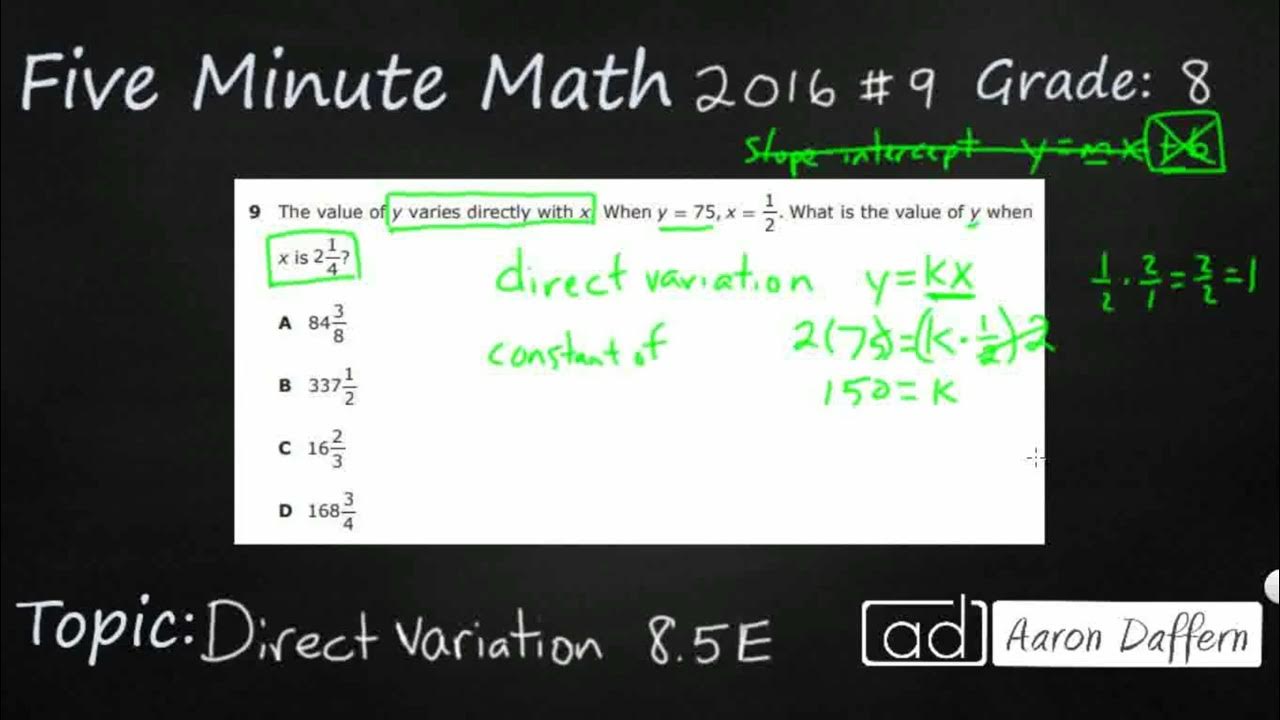 Five Minute Math 2016 #9 Grade: 8
slope intercept y = mx + b
9 The value of y varies directly with x. When y = 75, x = 1/2. What is the value of y when
x is 2 1/4?
direct variation y = kx
1/2 · 2/1 = 2/2 = 1
A 84 3/8
constant of 2(75) = (k · 1/2) · 2
B 337 1/2
150 = k
C 16 2/3
D 168 3/4
Topic: Direct Variation 8.5E
ad Aaron Daffern